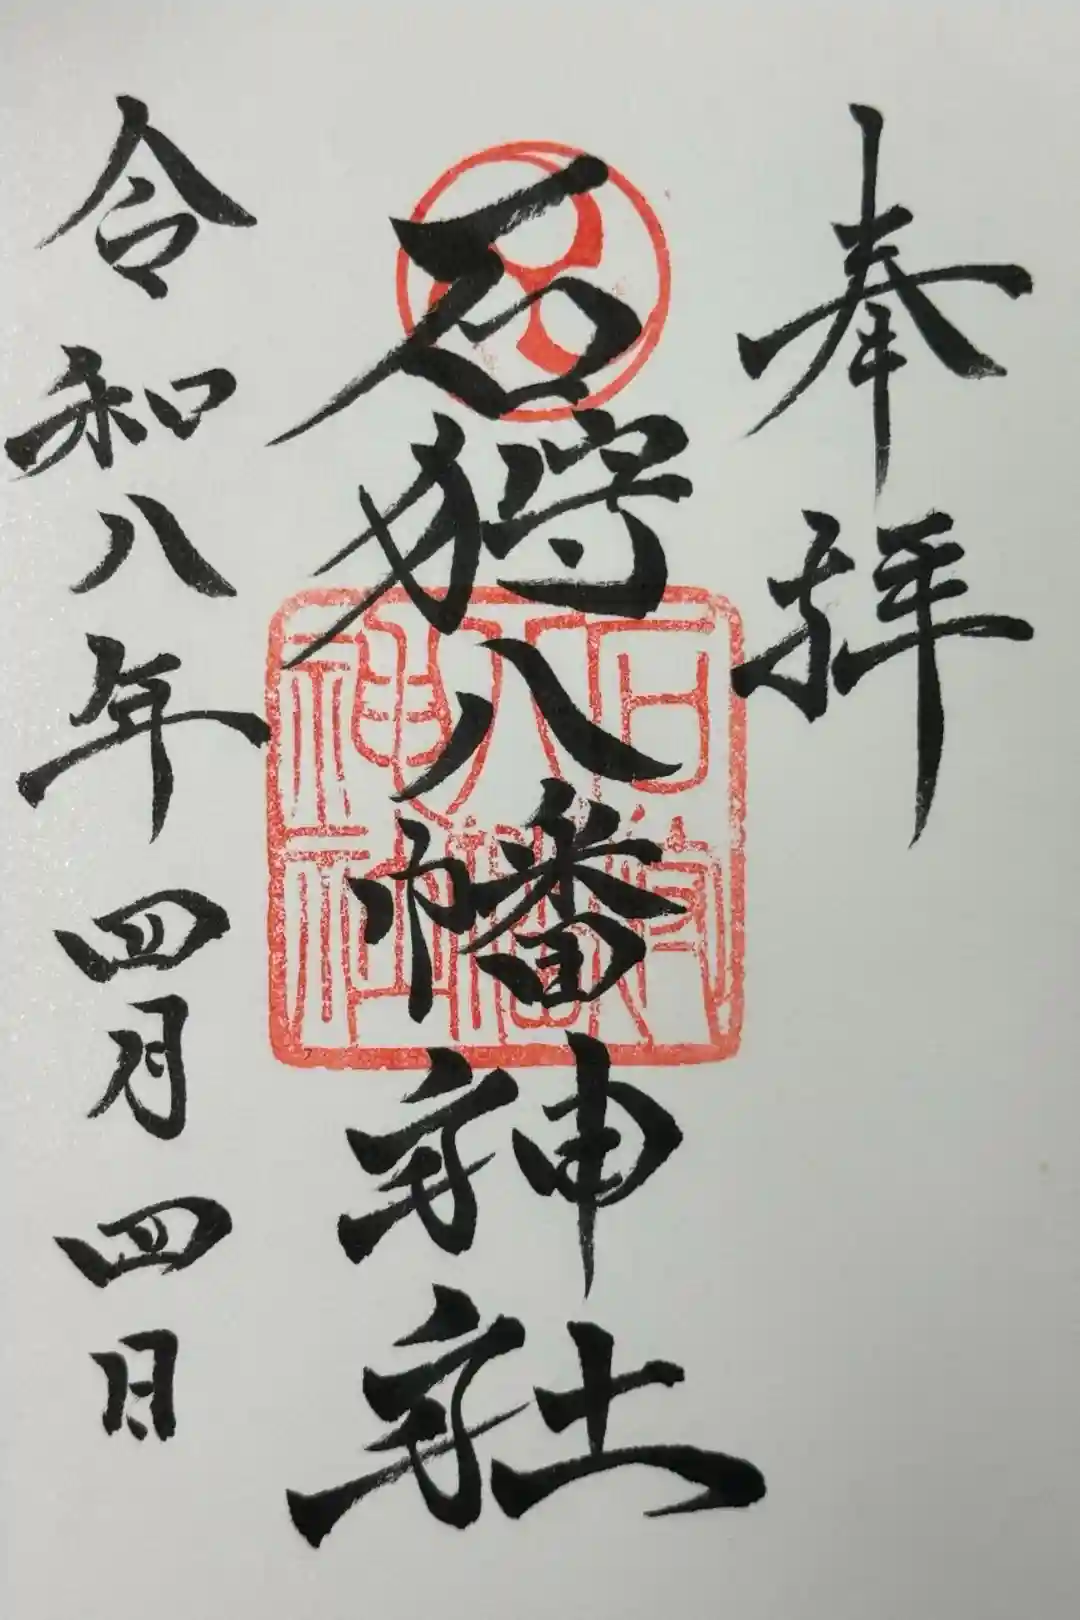 奉拝
石狩八幡神社
石狩八幡神社
令和八年四月四日